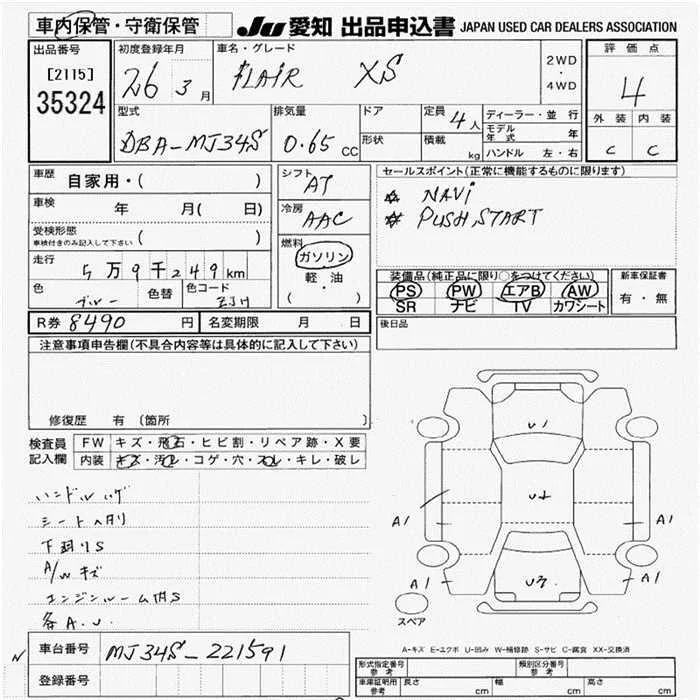 車内保管・守衛保管
JU 愛知 出品申込書 JAPAN USED CAR DEALERS ASSOCIATION
出品番号
[2115]
35324
初度登録年月
26 3 月
車名・グレード
FLAIR XS
2WD
・
4WD
評価点
4
外装 内装
C C
型式
DBA-MJ34S
排気量
0.65 CC
ドア
形状
定員 4 人
積載 kg
ディーラー・並行
モデル年式 年
ハンドル 左・右
車歴 自家用・( )
車検 年 月( 日)
受検形態
車検付きのみ記入して下さい ( )
走行 5万9千249km
色 ブルー 色替 色コード ZJH
シフト AT
冷房 AAC
燃料
ガソリン
・
軽油
( )
セールスポイント(正常に機能するものに限ります)
☆ NAVi
☆ PUSH START
装備品(純正品に限り○をつけてください)
PS PW エアB AW
SR ナビ TV カワシート
新車保証書
有・無
R券 8490 円 名変期限 月 日
後日品
注意事項申告欄(不具合内容等は具体的に記入して下さい)
修復歴 有 〔箇所 〕
検査員
記入欄
FW キズ・飛石・ヒビ割・リペア跡・X要
内装 キズ・汚れ・コゲ・穴・スレ・キレ・破レ
シート
下回りS
A/W キズ
エンジンルーム内S
各A.U.
U1
U2
U3
A1
A1
A1
A1
A1
スペア
A-キズ E-エクボ U-凹み W-補修跡 S-サビ C-腐食 XX-交換済
車台番号 MJ34S-221591
登録番号
形式指定番号 参考
類別区分番号 参考
車庫証明用 参考 長さ cm 幅 cm 高さ cm